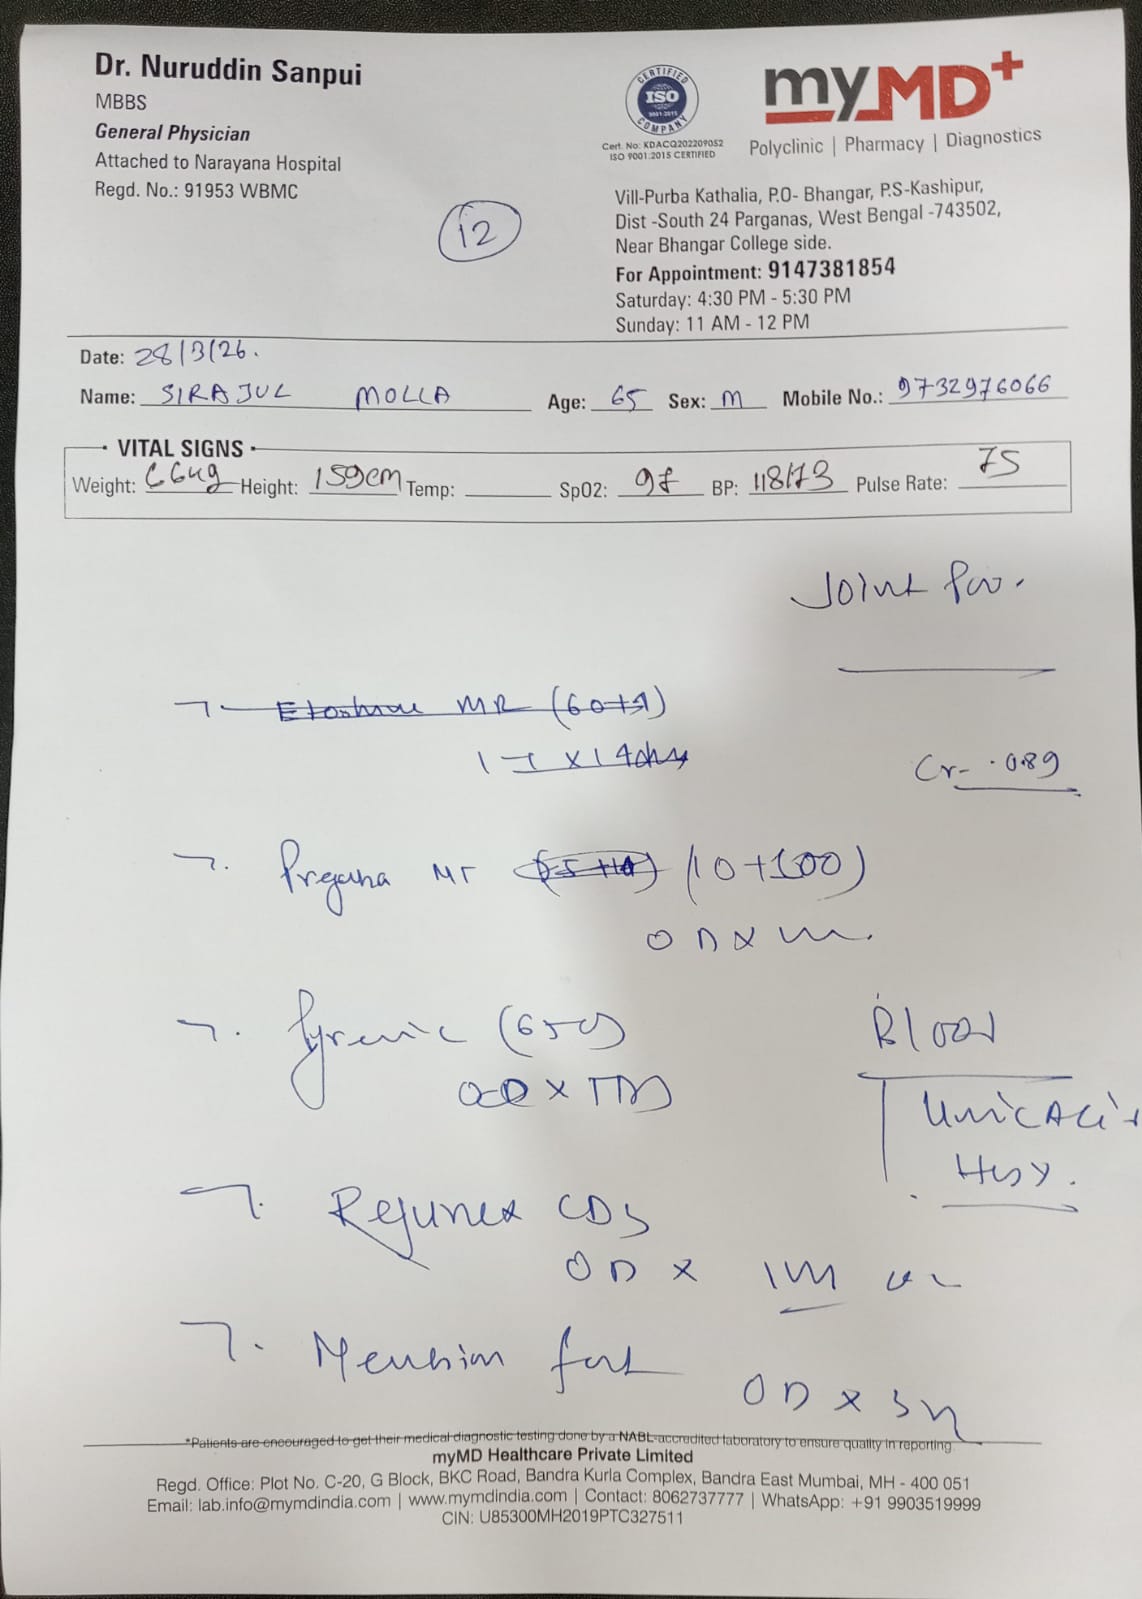 Dr. Nuruddin Sanpui
MBBS
General Physician
Attached to Narayana Hospital
Regd. No.: 91953 WBMC
12
CERTIFIED
ISO
9001:2015
COMPANY
Cert. No: KDACQ202209052
ISO 9001:2015 CERTIFIED
myMD+
Polyclinic | Pharmacy | Diagnostics
Vill-Purba Kathalia, P.O- Bhangar, P.S-Kashipur,
Dist -South 24 Parganas, West Bengal -743502,
Near Bhangar College side.
For Appointment: 9147381854
Saturday: 4:30 PM - 5:30 PM
Sunday: 11 AM - 12 PM
Date: 28/3/26.
Name: SIRAJUL MOLLA Age: 65 Sex: M Mobile No.: 9732976066
VITAL SIGNS
Weight: 66kg Height: 159cm Temp: SpO2: BP: 118/73 Pulse Rate: 75
Joint
MR (60+
Cr- 0.89
(10+100)
OD x
(650)
Blood
Uric Acid
Rejunex CD3
OD x 1M
OD x
*Patients are encouraged to get their medical diagnostic testing done by a NABL-accredited laboratory to ensure quality in reporting.
myMD Healthcare Private Limited
Regd. Office: Plot No. C-20, G Block, BKC Road, Bandra Kurla Complex, Bandra East Mumbai, MH - 400 051
Email: lab.info@mymdindia.com | www.mymdindia.com | Contact: 8062737777 | WhatsApp: +91 9903519999
CIN: U85300MH2019PTC327511